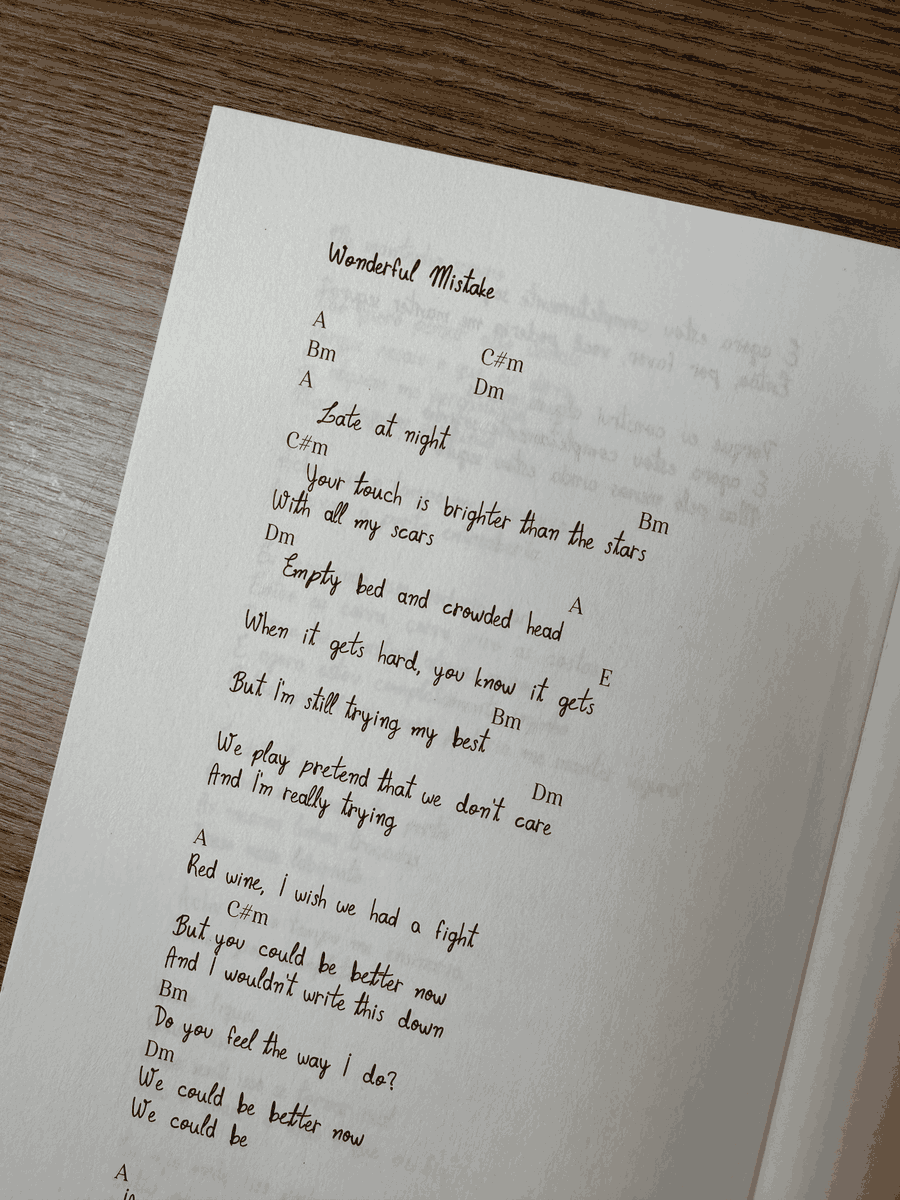 Wonderful Mistake
A
Bm C#m
A Dm
Late at night
C#m
Your touch is brighter than the stars
With all my scars Bm
Dm
Empty bed and crowded head
A
When it gets hard, you know it gets
E
But I'm still trying my best
Bm
We play pretend that we don't care
Dm
And I'm really trying
A
Red wine, I wish we had a fight
C#m
But you could be better now
And I wouldn't write this down
Bm
Do you feel the way I do?
Dm
We could be better now
We could be
A